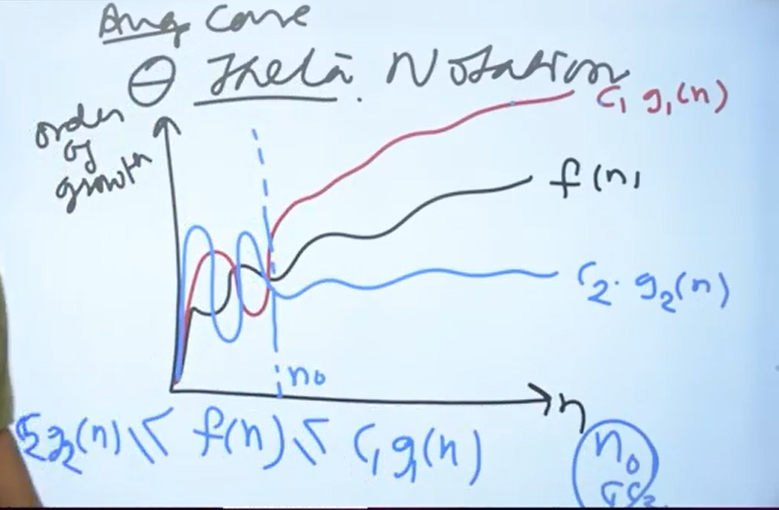 Avg Case
θ Theta Notation
order
of
growth
c₁ g₁(n)
f(n)
c₂· g₂(n)
n₀
n
c₂g₂(n) ≤ f(n) ≤ c₁g₁(n)
n₀
c₁ c₂